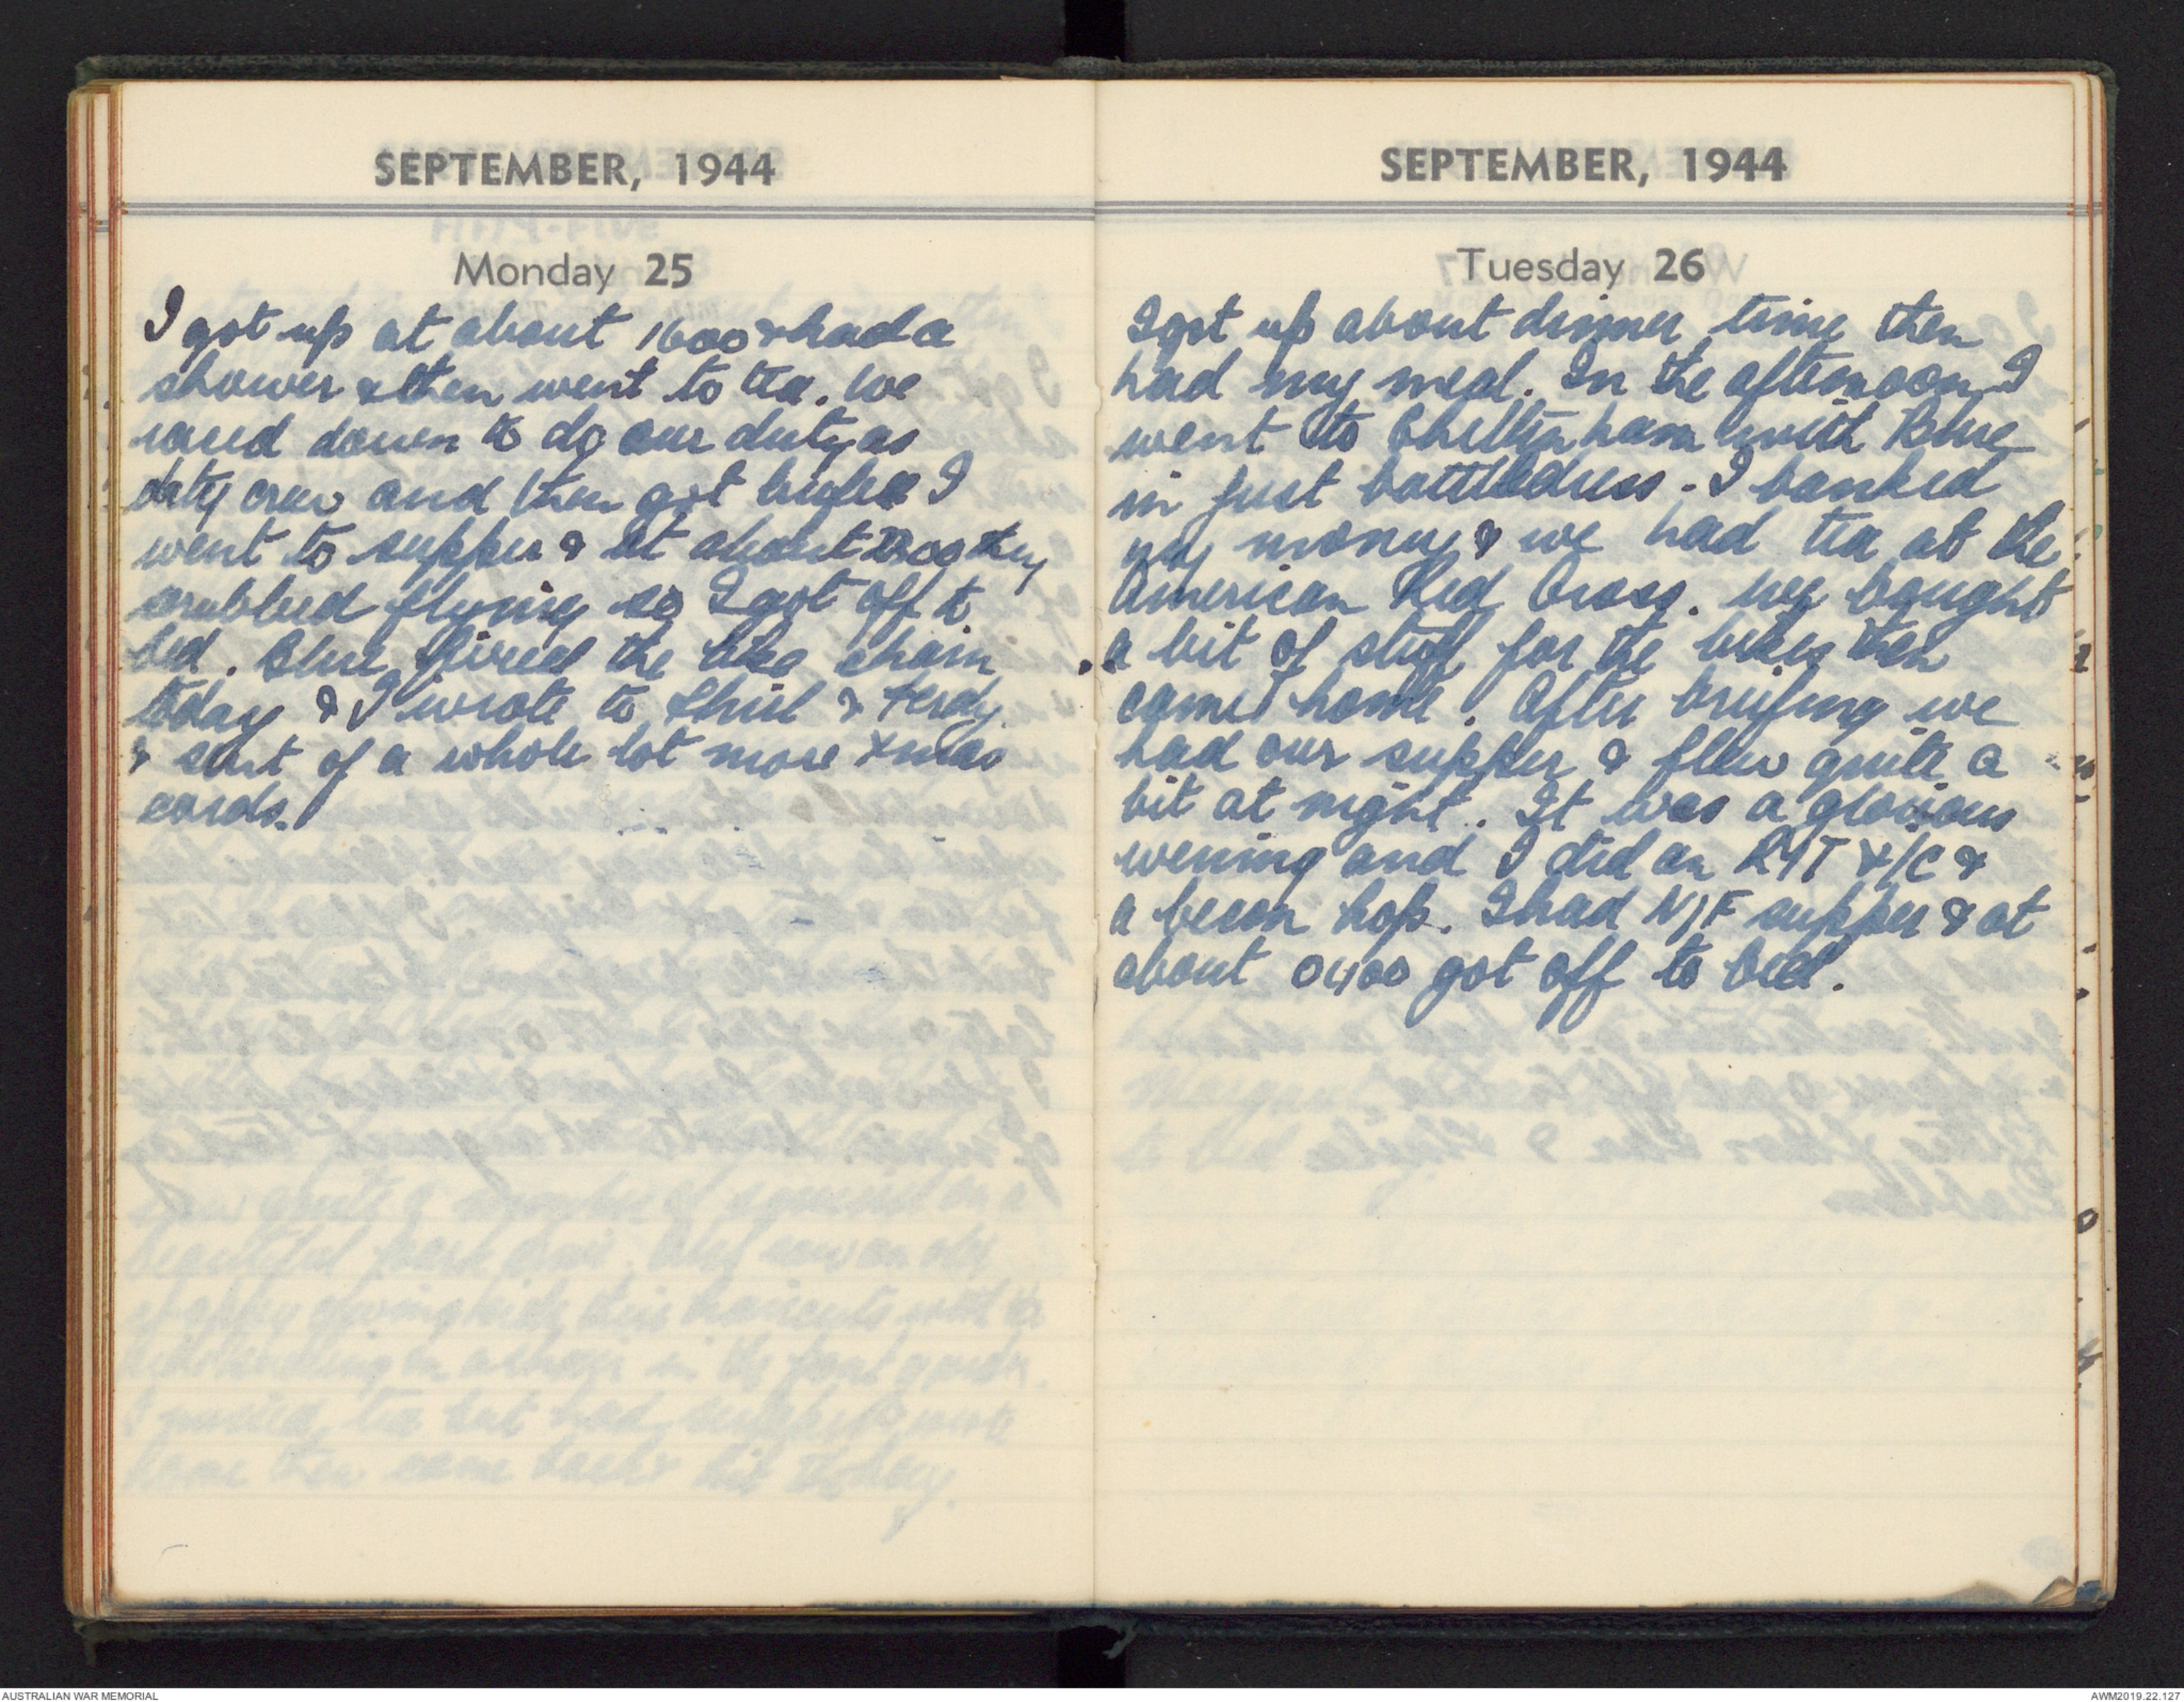 SEPTEMBER, 1944
Monday 25
I got up at about 1600 & had a
shower & then went to tea. We
raced down to do our duty as
duty crew and then got I
went to supper & at about they
scrubbed flying so I got off to
bed. Blue fixed the bike chain
today & I wrote to &
& sent of a whole lot more Xmas
cards.
SEPTEMBER, 1944
Tuesday 26
I got up about dinner time then
had my meal. In the afternoon I
went to Cheltenham with Blue
in just battledress. I banked
my money & we had tea at the
American Red Cross. We bought
a bit of stuff for the bikes then
came home. After briefing we
had our supper & flew quite a
bit at night. It was a glorious
evening and I did an X/C &
a becon hop. I had N/F supper & at
about 0400 got off to bed.
AUSTRALIAN WAR MEMORIAL
AWM2019.22.127